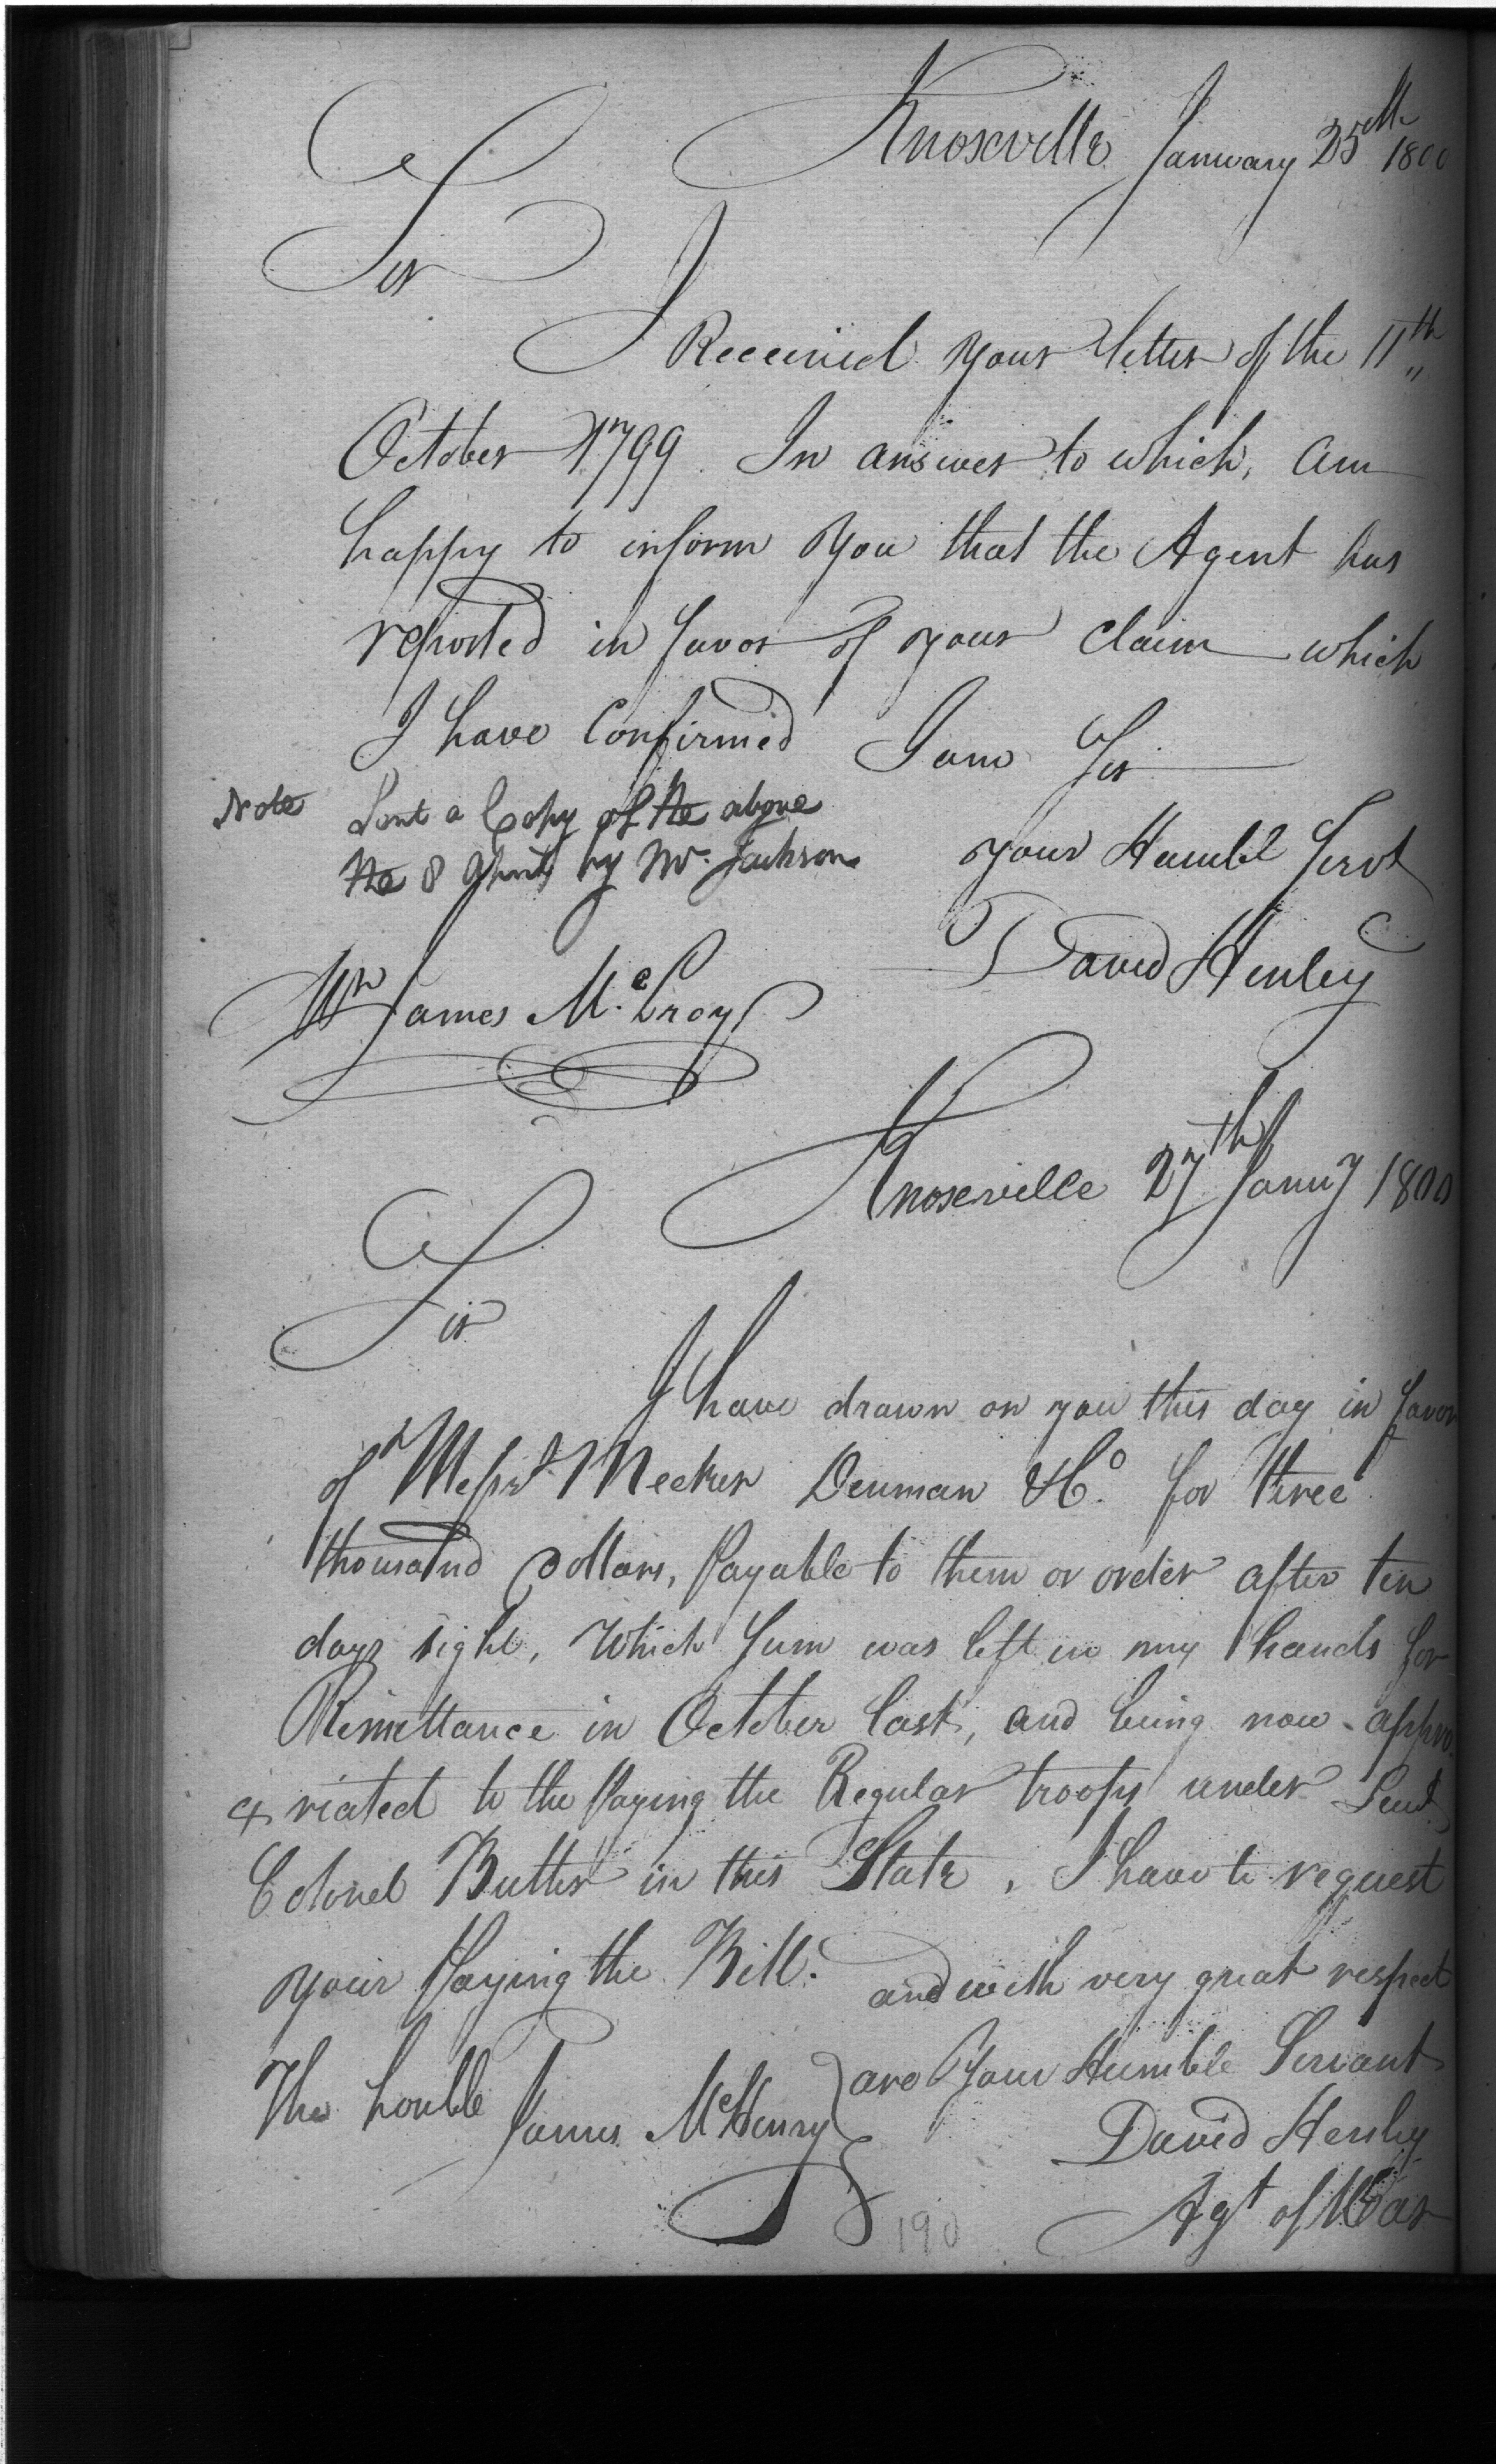 Knoxville January 25th 1800
Sir
I Received your letter of the 11th
October 1799. In answer to which, am
happy to inform you that the Agent has
reported in favor of your claim which
I have Confirmed I am Sir
Note Sent a Copy of the above
the 8 by Mr. Jackson
your Humbl Servt
David Henley
Mr James McLroy
Knoxville 27th Janu'y 1800
Sir
I have drawn on you this day in favor
of Messrs Meeker Denman & Co. for three
thousand Dollars, Payable to them or order after ten
days sight, Which Sum was left in my hands for
Remittance in October last, and being now appro
riated to the Paying the Regular troops under Leut
Colonel Butler in this State, I have to request
your Paying the Bill. and with very great respect
are Your Humble Servant
The honble James McHenry
David Henley
Agt of War
190